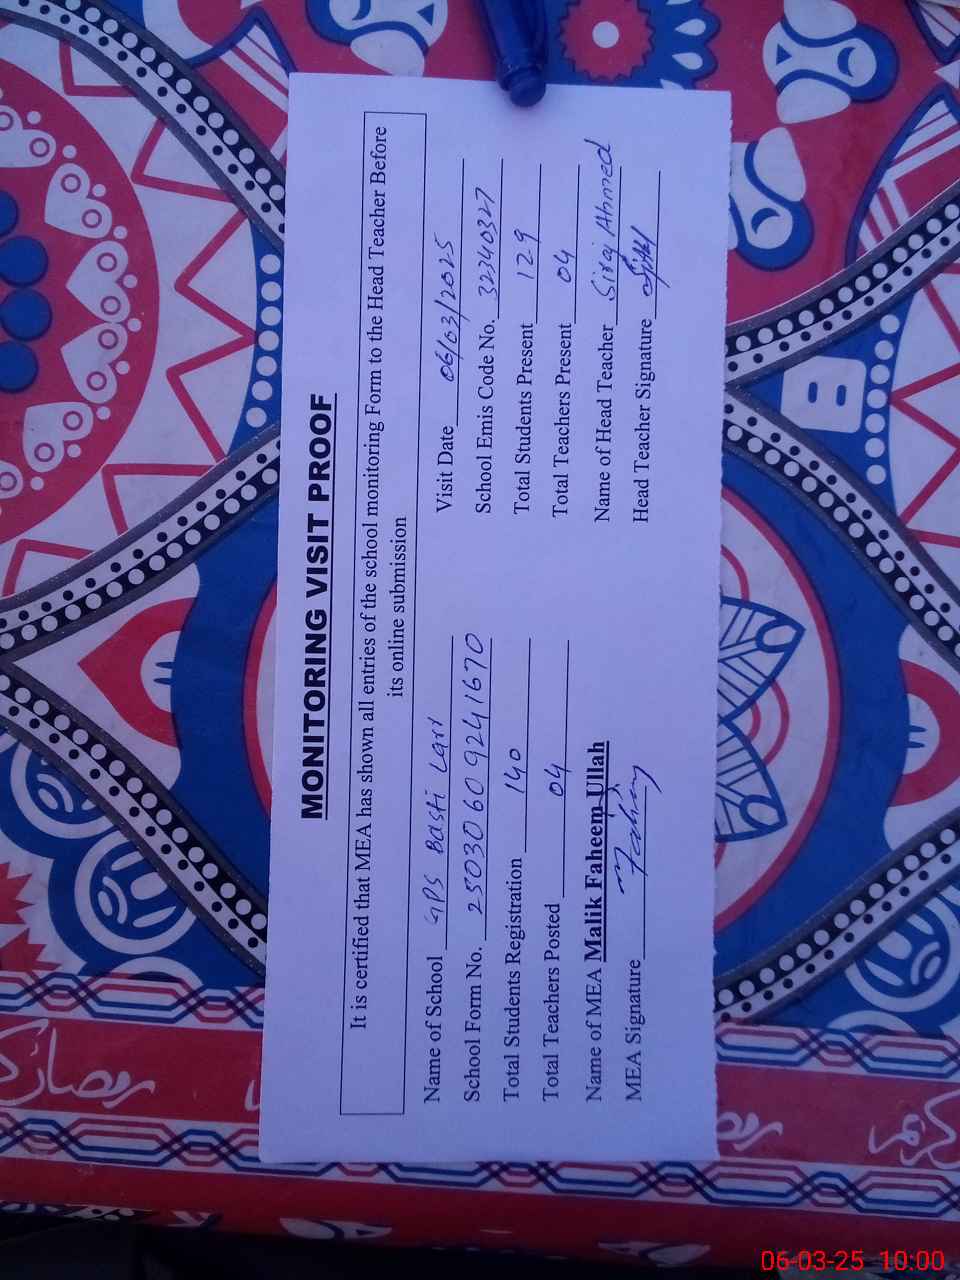 MONITORING VISIT PROOF
It is certified that MEA has shown all entries of the school monitoring Form to the Head Teacher Before
its online submission
Name of School GPS Basti Lar Visit Date 06/03/2025
School Form No. 25030609241670 School Emis Code No. 32340327
Total Students Registration 140 Total Students Present 129
Total Teachers Posted 04 Total Teachers Present 04
Name of MEA Malik Faheem Ullah Name of Head Teacher Siraj Ahmed
MEA Signature Faheem Head Teacher Signature
06-03-25 10:00